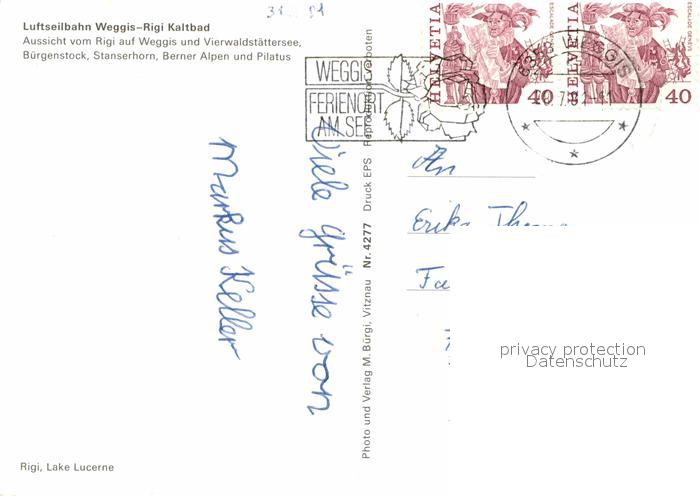 Luftseilbahn Weggis–Rigi Kaltbad
Aussicht vom Rigi auf Weggis und Vierwaldstättersee,
Bürgenstock, Stanserhorn, Berner Alpen und Pilatus
WEGGIS
FERIENORT
AM SEE
HELVETIA
ESCALADE GENÈVE
40
HELVETIA
ESCALADE GENÈVE
40
WEGGIS
Viele Grüsse von
Markus Keller
Photo und Verlag M. Bürgi, Vitznau Nr. 4277 Druck EPS Reproduktion verboten
An
privacy protection
Datenschutz
Rigi, Lake Lucerne